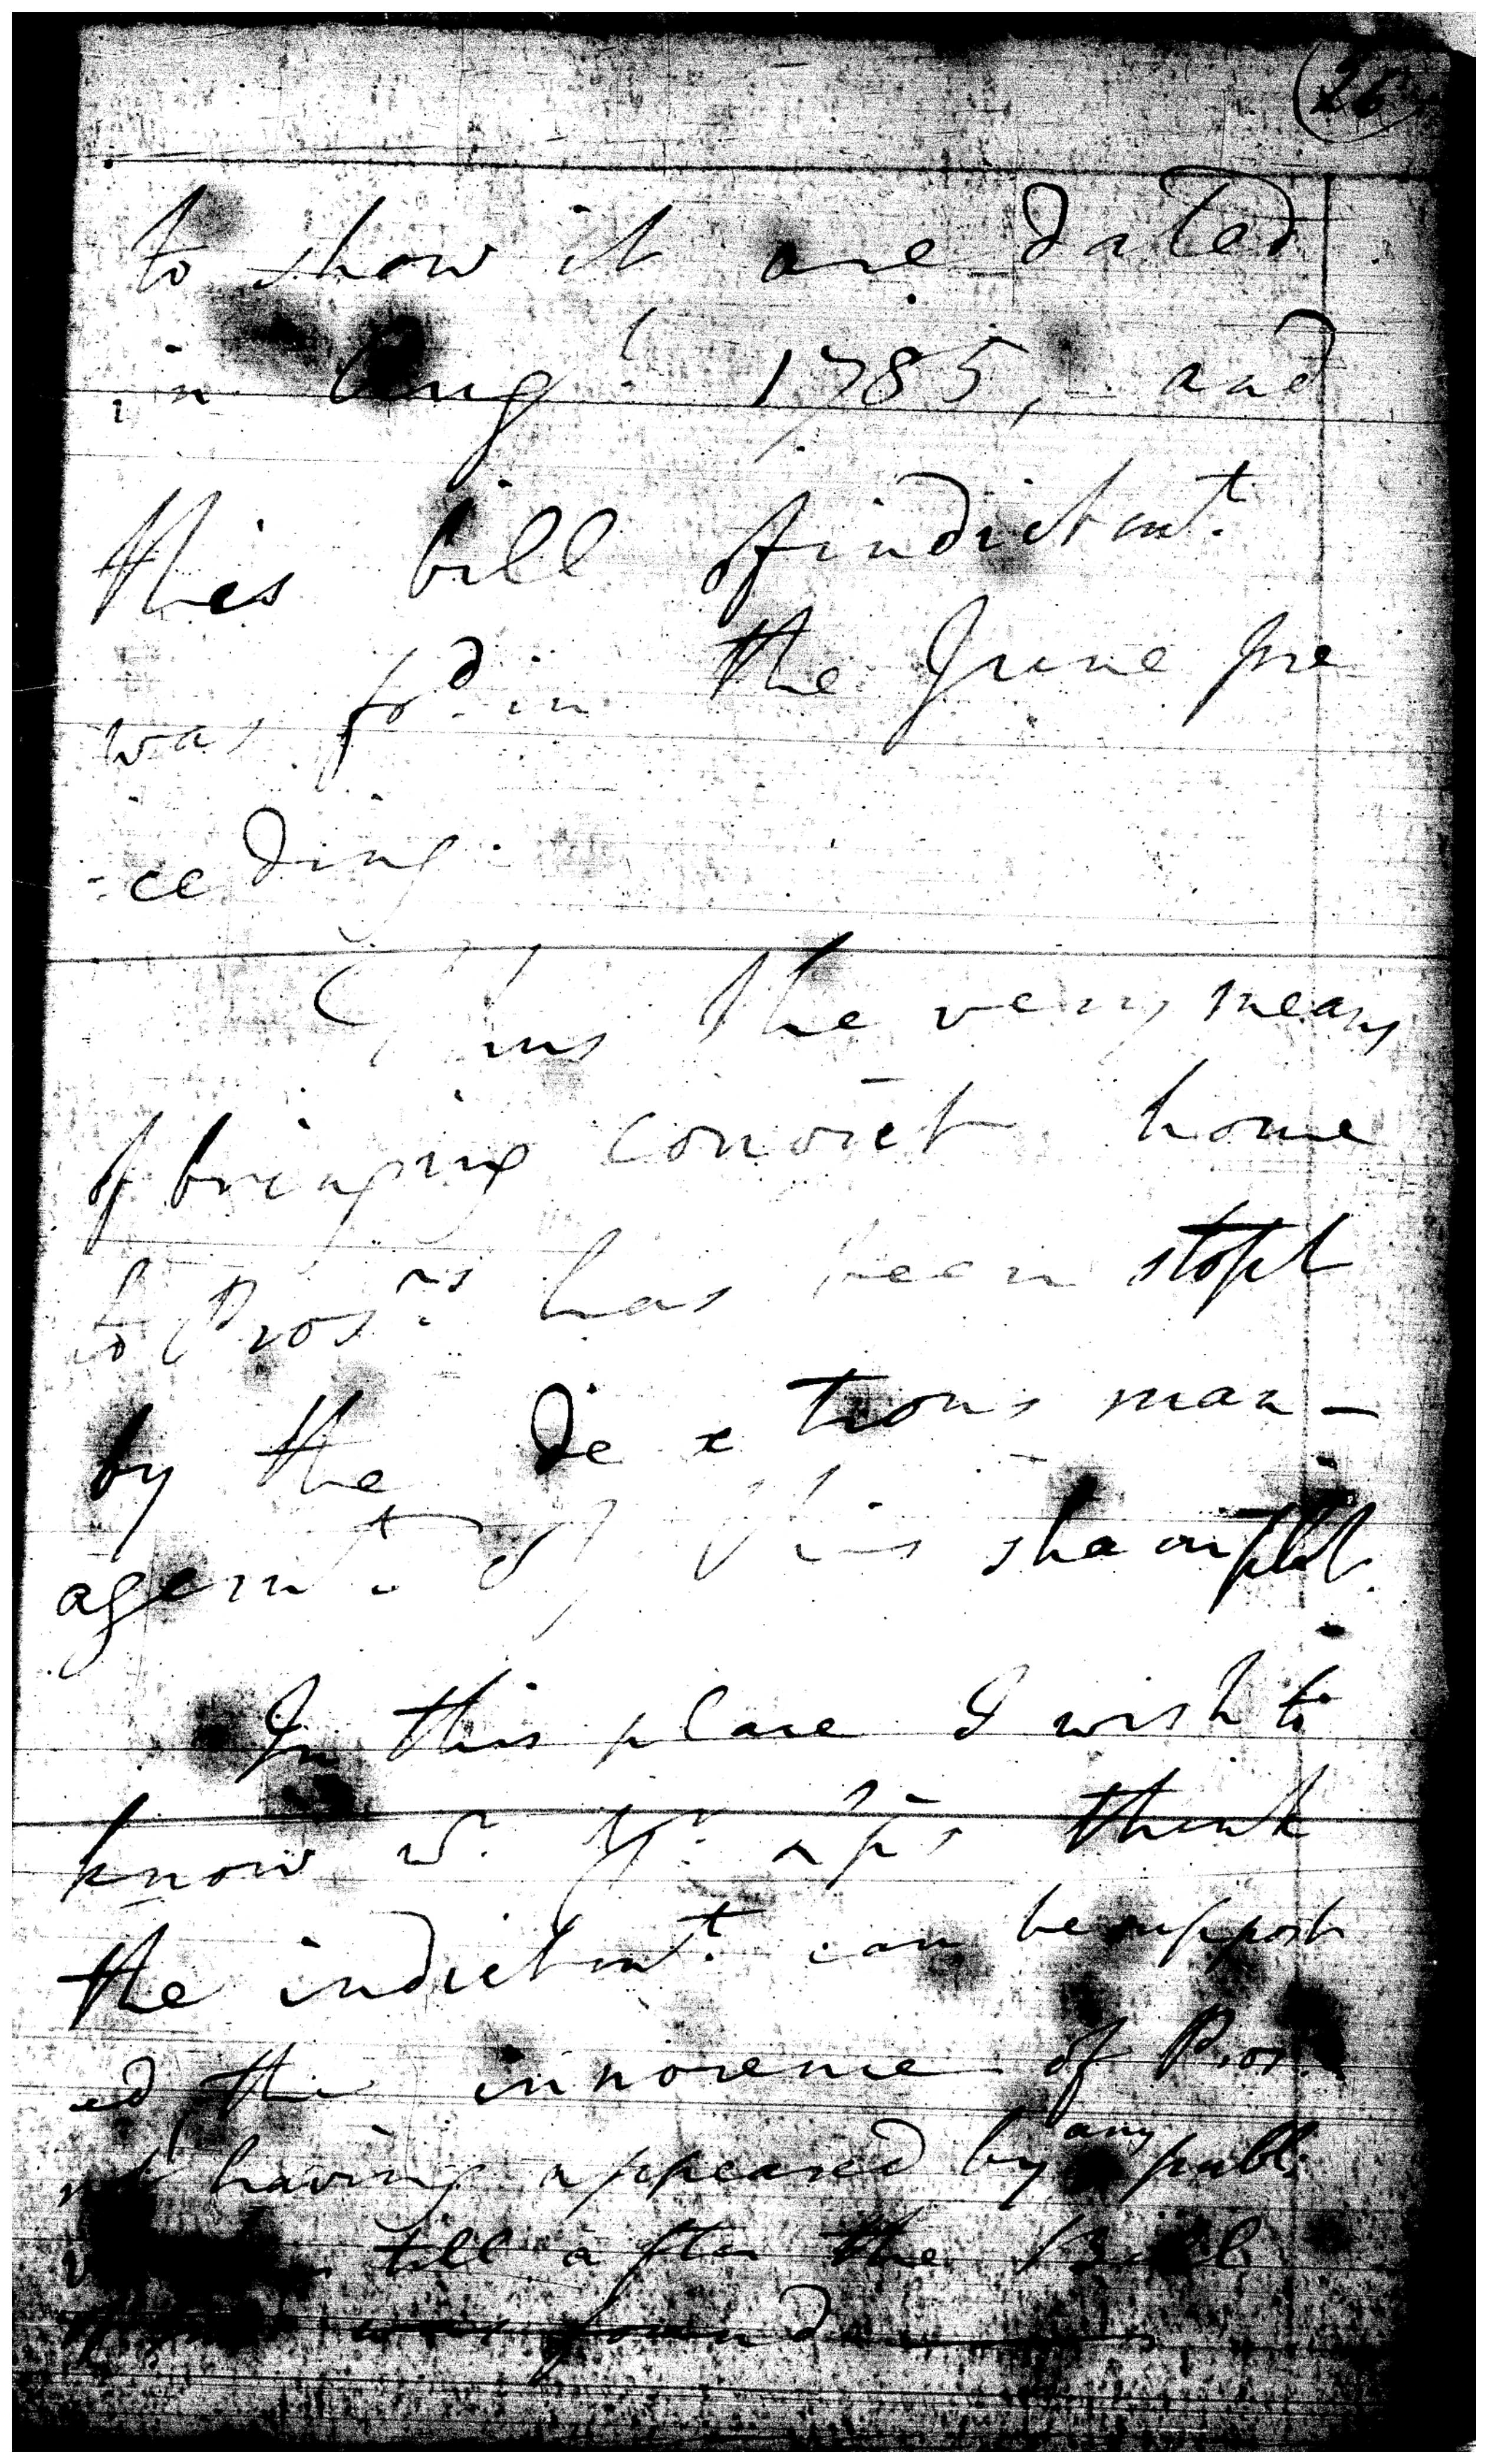 to show it are dated
in Augt 1785, and
this bill of indictmt.
was fd. in the June pre
-ceding.
Thus the very means
of bringing convict home
to Prosrs has been stopt
by the dextrous man-
agemt. of this sham plot.
In this place I wish to
know wr. Yr. think
the indictmt. can be support
ed, the innocence of Pros.
not having appeared by any publ.
till after the Bill
was found